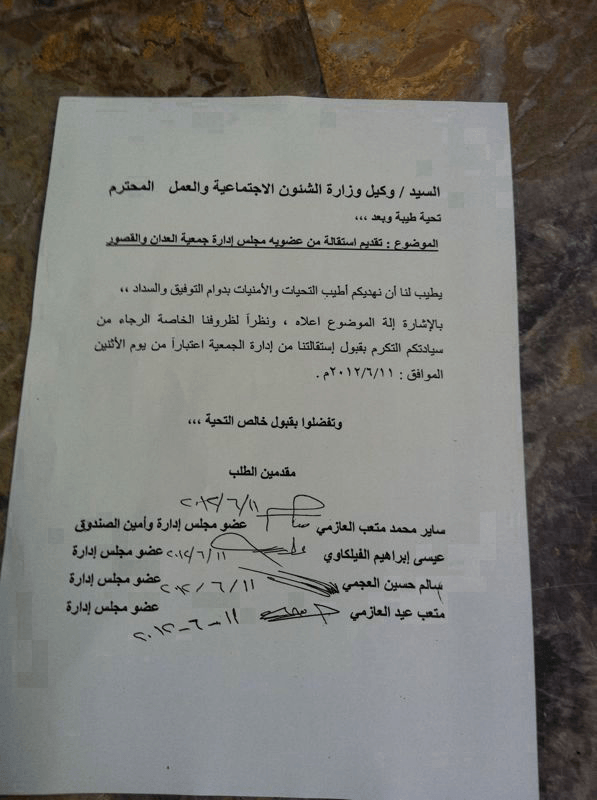 السيد / وكيل وزارة الشئون الاجتماعية والعمل المحترم
تحية طيبة وبعد ,,,
الموضوع : تقديم استقالة من عضويه مجلس إدارة جمعية العدان والقصور
يطيب لنا أن نهديكم أطيب التحيات والأمنيات بدوام التوفيق والسداد ,,
بالإشارة إلة الموضوع اعلاه ، ونظراً لظروفنا الخاصة الرجاء من
سيادتكم التكرم بقبول إستقالتنا من إدارة الجمعية اعتباراً من يوم الأثنين
الموافق : ٢٠١٢/٦/١١م .
وتفضلوا بقبول خالص التحية ,,,
مقدمين الطلب
٢٠١٢/٦/١١
ساير محمد متعب العازمي عضو مجلس إدارة وأمين الصندوق
عيسى إبراهيم الفيلكاوي ٢٠١٢/٦/١١ عضو مجلس إدارة
سالم حسين العجمي ٢٠١٢/٦/١١ عضو مجلس إدارة
متعب عيد العازمي عضو مجلس إدارة
٢٠١٢-٦-١١